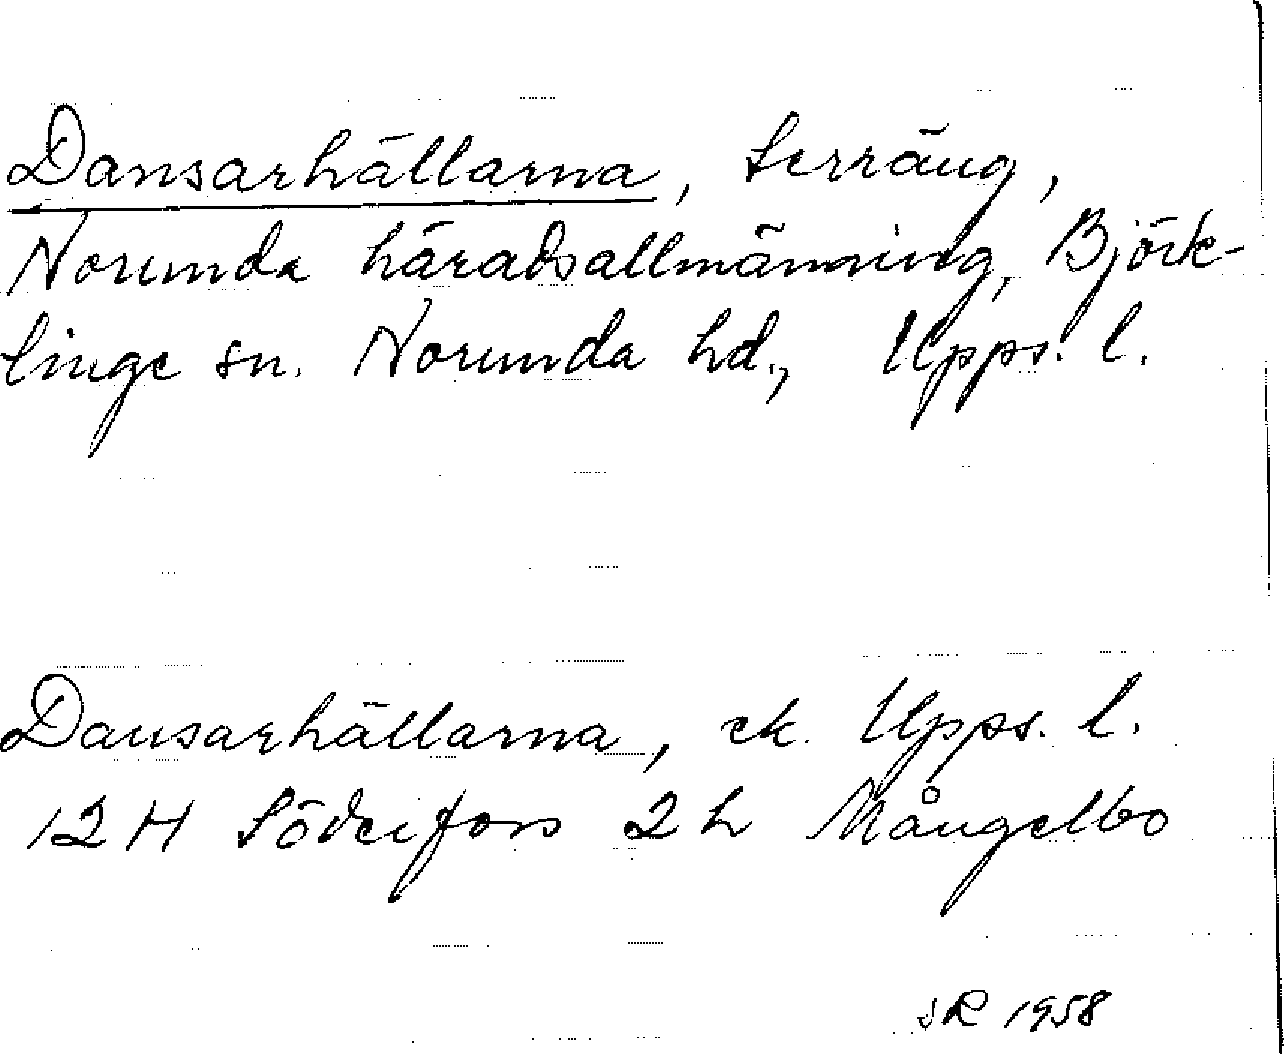 Dansarhällarna, terräng,
Norunda häradsallmänning, Björk-
linge sn. Norunda hd., Upps. l.
Dansarhällarna, ek. Upps. l.
12 H Söderfors 2 h Mångelbo
SR 1958